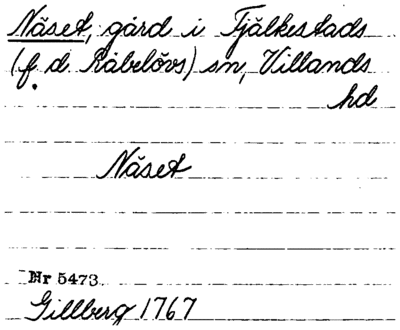 Näset, gård i Fjälkestads
(f. d. Råbelövs) sn, Villands
hd
Näset
Nr 5473
Gillberg 1767